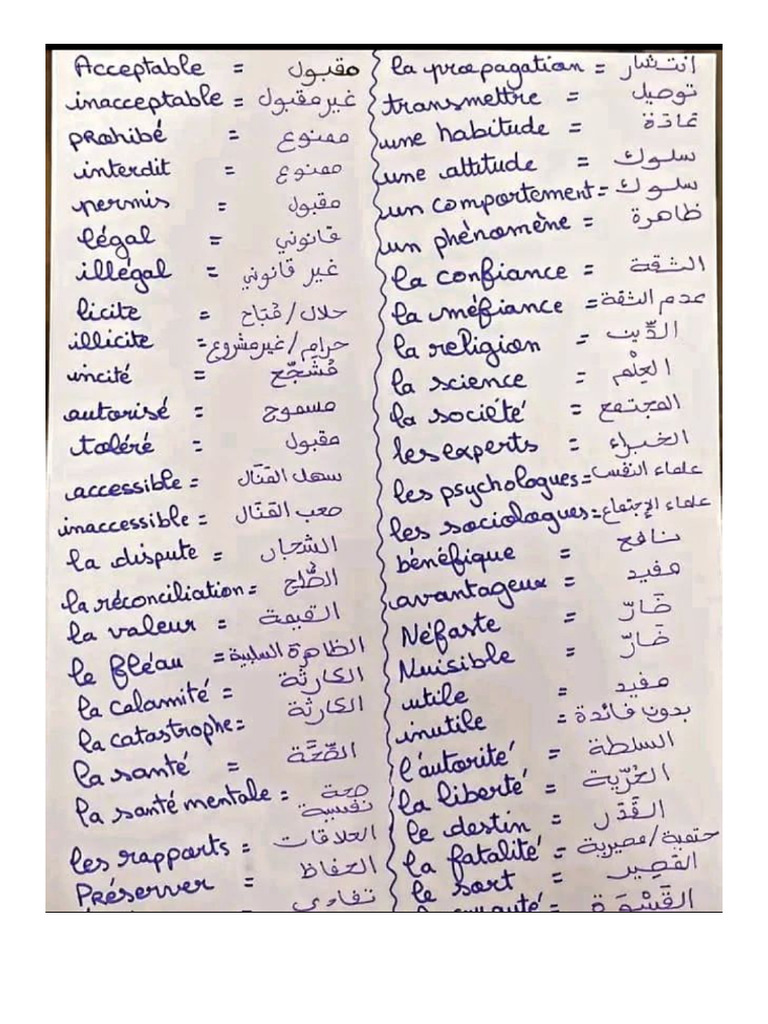 Acceptable = مقبول
inacceptable = غير مقبول
prohibé = ممنوع
interdit = ممنوع
permis = مقبول
légal = قانوني
illégal = غير قانوني
licite = حلال / مُبَاح
illicite = حرام / غير مشروع
incité = مُشَجّع
autorisé = مسموح
toléré = مقبول
accessible = سهل المَنَال
inaccessible = صعب المَنَال
la dispute = الشجار
la réconciliation = الصُّلح
la valeur = القيمة
le fléau = الظاهرة السلبية
la calamité = الكارثة
la catastrophe = الكارثة
la santé = الصِّحَّة
la santé mentale = صحة نفسية
les rapports = العلاقات
Préserver = الحفاظ
= تفادي
la propagation = انتشار
transmettre = توصيل
une habitude = عَادَة
une attitude = سلوك
un comportement = سلوك
un phénomène = ظاهرة
la confiance = الثقة
la méfiance = عدم الثقة
la religion = الدِّين
la science = العِلْم
la société = المجتمع
les experts = الخبراء
les psychologues = علماء النفس
les sociologues = علماء الإجتماع
bénéfique = نافع
avantageux = مفيد
Néfaste = ضَارّ
Nuisible = ضَارّ
utile = مفيد
inutile = بدون فائدة
l'autorité = السلطة
la liberté = الحُرّية
le destin = القَدَر
la fatalité = حتمية / مصيرية
le sort = المَصِير
= القَسْوَة